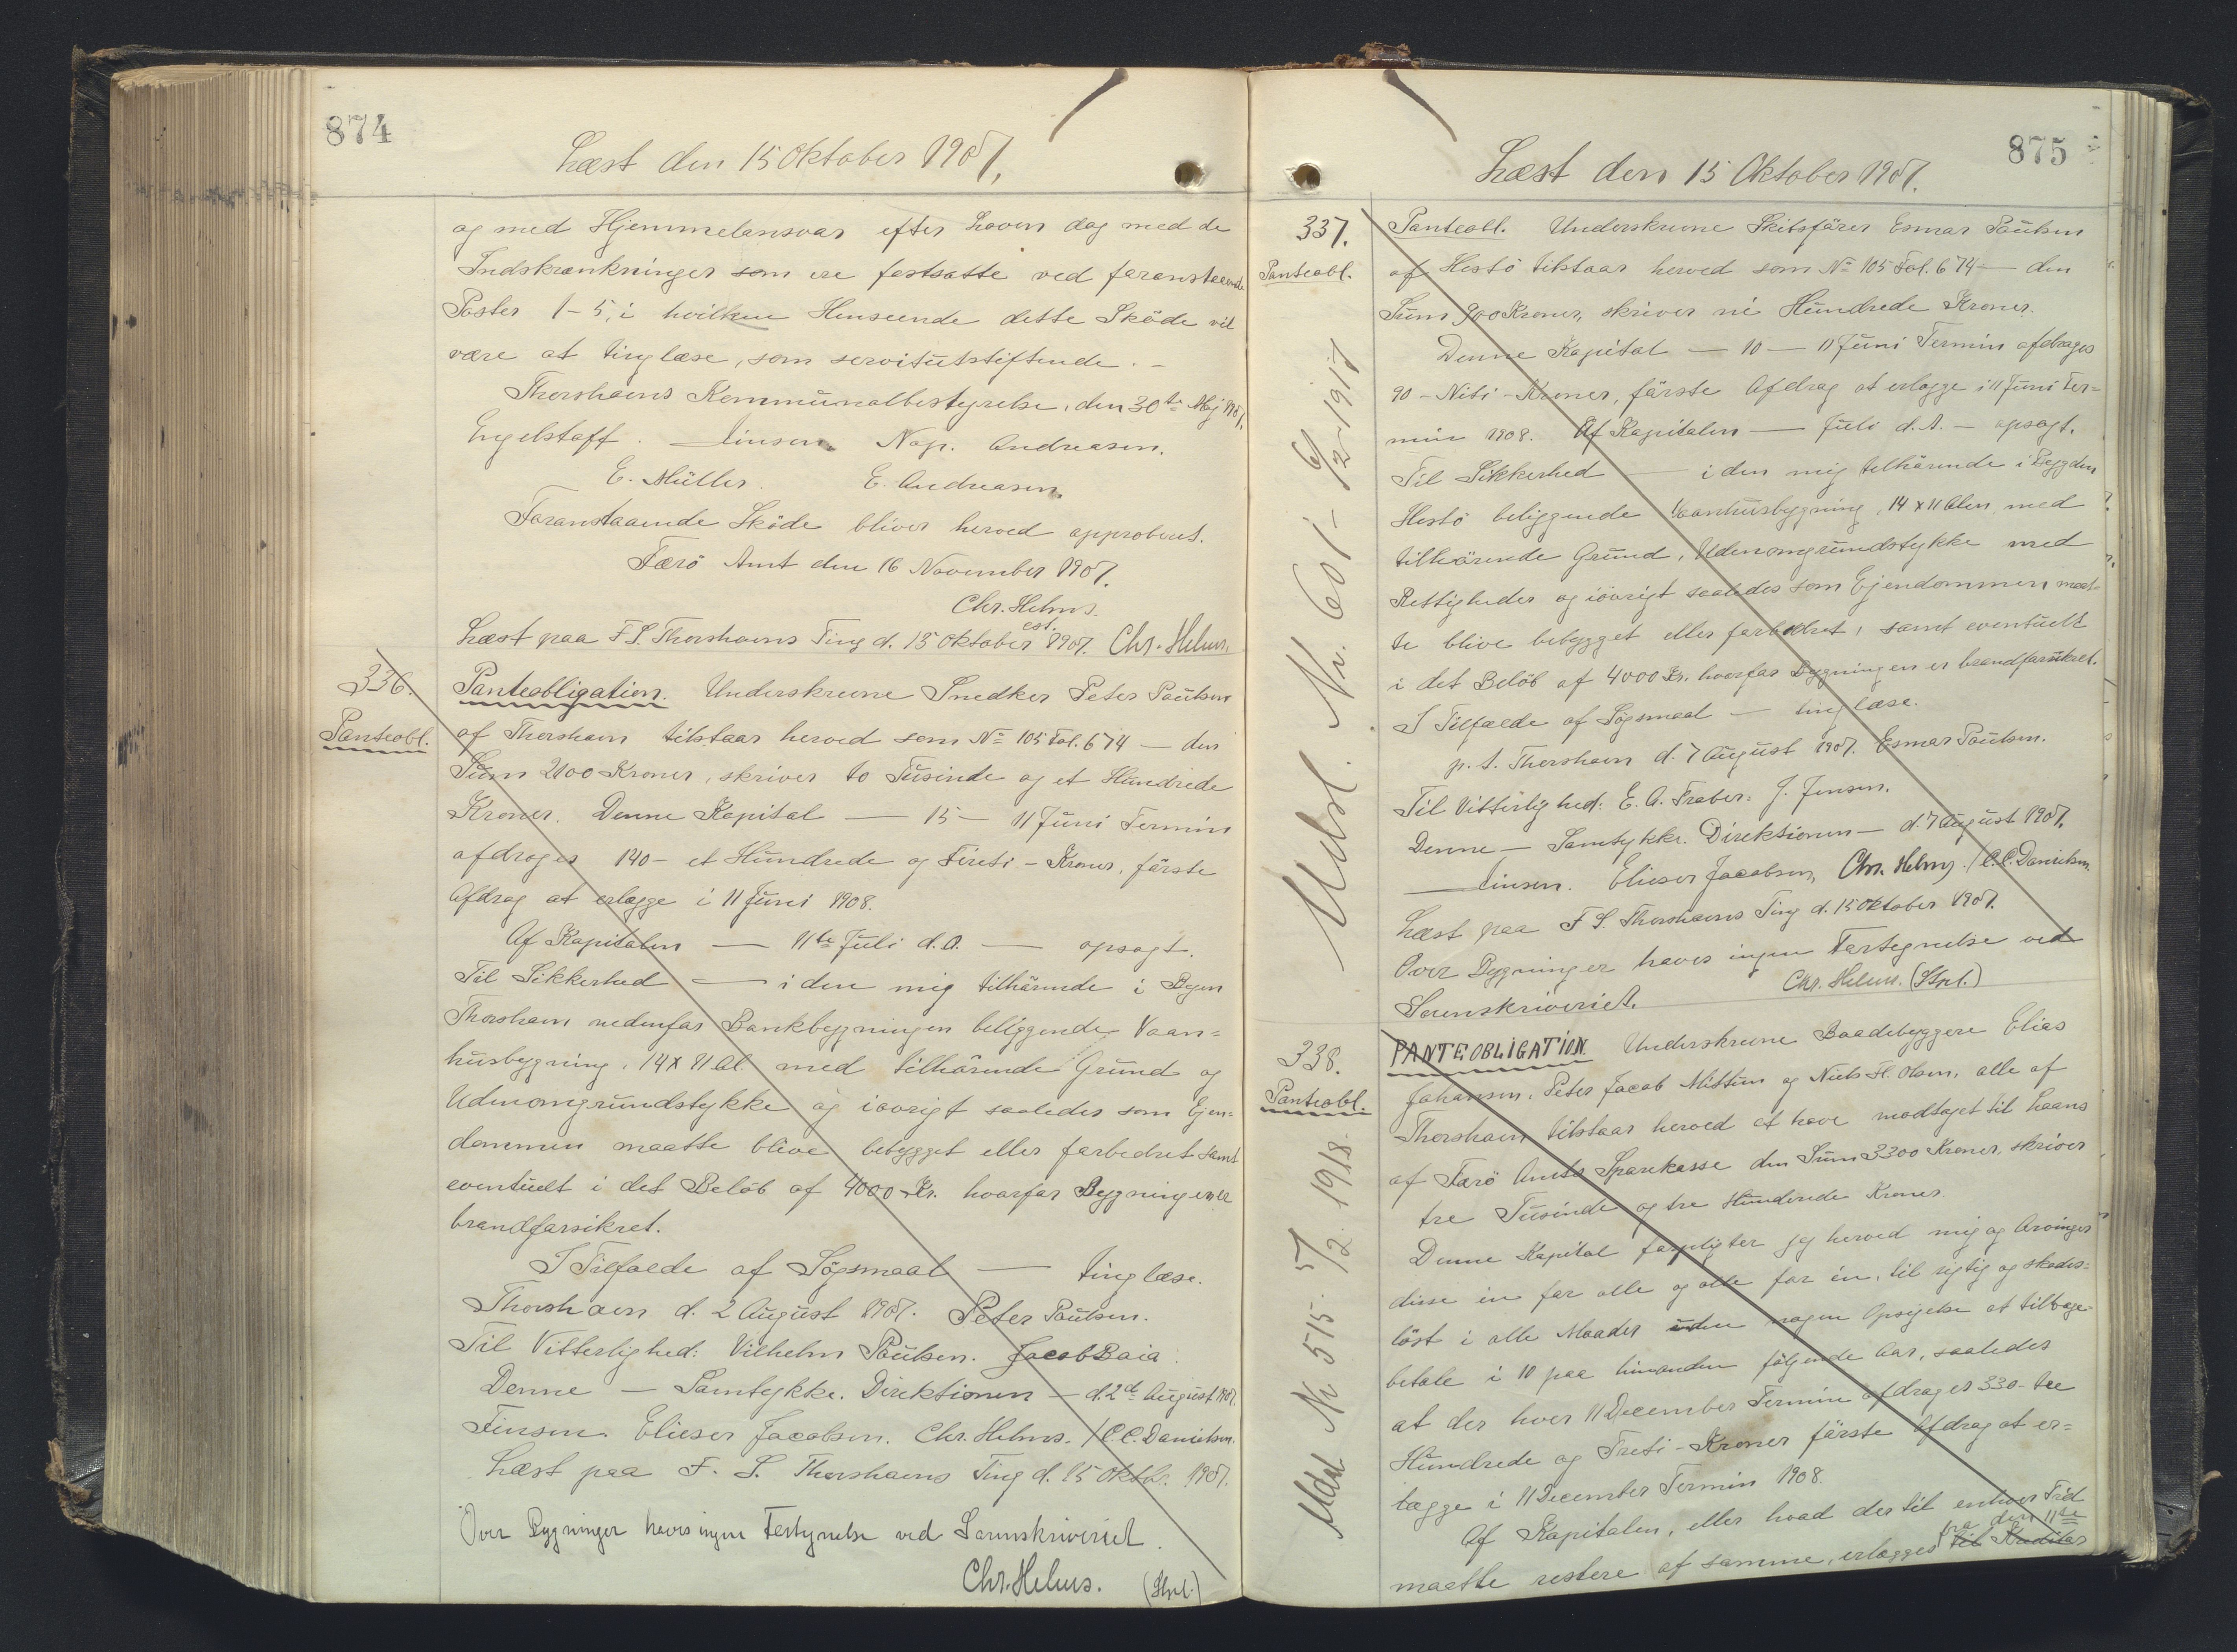 874
Læst den 15 Oktober 1907.
og med Hjemmelansvar efter Loven dog med de
Indskrænkninger som ere fastsatte ved foranstaaende
Poster 1-5, i hvilken Henseende dette Sköde vil
være at tinglæse, som servitutstiftende. -
Thorshavns Kommunalbestyrelse, den 30te Maj 1907.
Engelstoft. Finsen. Nap. Andreasen.
E. Müller. E. Andreasen.
Foranstaaende Sköde bliver herved approberet.
Færö Amt den 16 November 1907.
Chr. Helms.
cst.
Læst paa F.S. Thorshavns Ting d. 15 Oktober 1907. Chr. Helms.
336.
Panteobl.
Panteobligation. Underskrevne Snedker Peter Poulsen
af Thorshavn tilstaar herved som No 105 Fol. 674 — den
Sum 2100 Kroner, skriver to Tusinde og et Hundrede
Kroner. Denne Kapital — 15 — 11 Juni Termin
afdrages 140 - et Hundrede og Fireti - Kroner, förste
Afdrag at erlægge i 11 Juni 1908.
Af Kapitalen — 11te Juli d.A. — opsagt.
Til Sikkerhed — i den mig tilhörende i Byen
Thorshavn nedenfor Bankbygningen beliggende Vaan=
husbygning, 14 x 11 Al. med tilhörende Grund og
Udenomsgrundstykke og iövrigt saaledes som Ejen=
dommen maatte blive bebygget eller forbedret samt
eventuelt i det Belöb af 4000 Kr. hvorfor Bygningen er
brandforsikret.
I Tilfælde af Sögsmaal — tinglæse.
Thorshavn d. 2 August 1907. Peter Poulsen.
Til Vitterlighed: Vilhelm Poulsen. Jacob Baia.
Denne — Samtykke. Direktionen — d. 2d August 1907.
Finsen. Elieser Jacobsen. Chr. Helms. / C.C. Danielsen.
Læst paa F. S. Thorshavns Ting d. 15 Oktbr. 1907.
Over Bygninger haves ingen Fortegnelse ved Sorenskriveriet.
Chr. Helms. (Stpl.)
875
Læst den 15 Oktober 1907.
337.
Panteobl.
Udsl. Nr. 601 - 6/2-1917
Panteobl. Underskrevne Skibsförer Esmar Poulsen
af Hestö tilstaar herved som No 105 Fol. 674 — den
Sum 900 Kroner, skriver ni Hundrede Kroner.
Denne Kapital — 10 — 11 Juni Termin afdrages
90 - Niti - Kroner, förste Afdrag at erlægge i 11 Juni Ter=
min 1908. Af Kapitalen — Juli d. A. — opsagt.
Til Sikkerhed — i den mig tilhörende i Bygden
Hestö beliggende Vaanhusbygning, 14 x 11 Alen, med
tilhörende Grund, Udenomsgrundstykke med
Rettigheder og iövrigt saaledes som Ejendommen maat-
te blive bebygget eller forbedret, samt eventuelt
i det Belöb af 4000 Kr. hvorfor Bygningen er brandforsikret.
I Tilfælde af Sögsmaal — tinglæse.
p. t. Thorshavn d. 7 August 1907. Esmar Poulsen.
Til Vitterlighed: E. A. Fraber. J. Jensen.
Denne — Samtykke. Direktionen — d. 7 August 1907.
Finsen. Elieser Jacobsen, Chr. Helms. / C.C. Danielsen.
Læst paa F S. Thorshavns Ting d. 15 Oktober 1907.
Over Bygninger haves ingen Fortegnelse ved
Sorenskriveriet. Chr. Helms. (Stpl.)
338.
Panteobl.
Udsl Nr. 515. 5/2 1918.
PANTEOBLIGATION. Underskrevne Baadebyggere Elias
Johansen, Peter Jacob Mittun og Niels H. Olsen, alle af
Thorshavn tilstaar herved at have modtaget til Laans
af Færö Amts Sparekasse den Sum 3300 Kroner, skriver
tre Tusinde og tre Hunderede Kroner.
Denne Kapital forpligter jeg herved mig og Arvinger
disse en for alle og alle for en, til rigtig og skades=
löst i alle Maader uden nogen Opsigelse at tilbage-
betale i 10 paa hinanden följende Aar, saaledes
at der hver 11 December Termin afdrages 330 - tre
Hundrede og Treti - Kroner förste Afdrag at er=
lægge i 11 December Termin 1908.
Af Kapitalen, eller hvad der til enhver Tid
fra den 11te
maatte restere af samme, erlægges til Kreditor